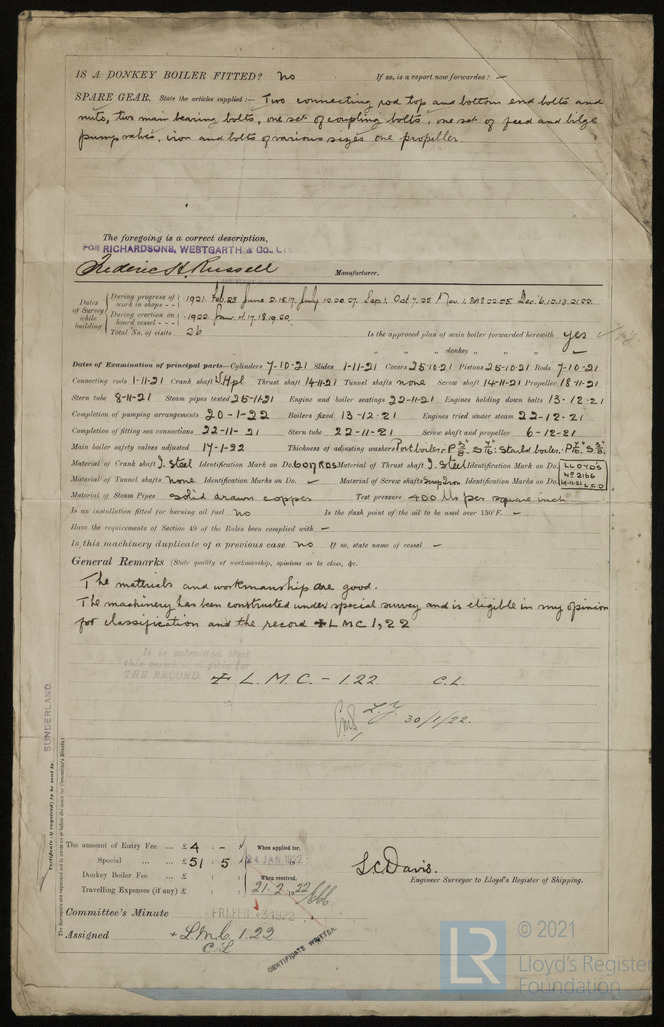 IS A DONKEY BOILER FITTED? No If so, is a report now forwarded? —
SPARE GEAR. State the articles supplied:— Two connecting rod top and bottom end bolts and
nuts, two main bearing bolts, one set of coupling bolts, one set of feed and bilge
pump valves, iron and bolts of various sizes one propeller.
The foregoing is a correct description,
FOR RICHARDSONS, WESTGARTH & CO., L
Frederic H. Russell Manufacturer.
Dates of Survey while building
During progress of work in shops - - 1921. Feb. 28 June 2.15.17. July 12.20.27. Sep. 1. Oct 7. 25 Nov. 1. 8.18.22.25. Dec. 6.12.13.21.22.
During erection on board vessel - - - 1922. Jan. 4.17.18.19.20.
Total No. of visits 26 Is the approved plan of main boiler forwarded herewith yes
" " " donkey " " " —
Dates of Examination of principal parts—Cylinders 7-10-21 Slides 1-11-21 Covers 25-10-21 Pistons 25-10-21 Rods 7-10-21
Connecting rods 1-11-21 Crank shaft Thrust shaft 14-11-21 Tunnel shafts none Screw shaft 14-11-21 Propeller 18-11-21
Stern tube 8-11-21 Steam pipes tested 25-11-21 Engine and boiler seatings 22-11-21 Engines holding down bolts 13-12-21
Completion of pumping arrangements 20-1-22 Boilers fixed 13-12-21 Engines tried under steam 22-12-21
Completion of fitting sea connections 22-11-21 Stern tube 22-11-21 Screw shaft and propeller 6-12-21
Main boiler safety valves adjusted 17-1-22 Thickness of adjusting washers Port boiler: P 3/8 S 7/16: Starbd boiler. P 7/16 S 3/8
Material of Crank shaft I. Steel Identification Mark on Do. 6017RDS Material of Thrust shaft I. Steel Identification Mark on Do. LLOYD'S
Material of Tunnel shafts None Identification Marks on Do. — Material of Screw shafts Scrap Iron Identification Marks on Do. No 2166
14-11-21 L.C.D
Material of Steam Pipes solid drawn copper Test pressure 400 lbs per square inch
Is an installation fitted for burning oil fuel No Is the flash point of the oil to be used over 150°F. —
Have the requirements of Section 49 of the Rules been complied with —
Is this machinery duplicate of a previous case No If so, state name of vessel —
General Remarks (State quality of workmanship, opinions as to class, &c.
The materials and workmanship are good.
The machinery has been constructed under special survey and is eligible in my opinion
for classification and the record + LMC 1,22
It is submitted that
this vessel is eligible for
THE RECORD. + L.M.C. - 1.22 C.L.
30/1/22.
SUNDERLAND
Certificate (if required) to be sent to
The amount of Entry Fee ... £ 4 : - When applied for,
Special ... ... £ 51 : 5 24 JAN 1922
Donkey Boiler Fee ... £ : : When received,
Travelling Expenses (if any) £ : : 21.2.1922
L.C. Davis.
Engineer Surveyor to Lloyd's Register of Shipping.
Committee's Minute FRI. FEB. 3 1922
Assigned + L.M.C. 1.22
C.L.
CERTIFICATE WRITTEN
LR
© 2021
Lloyd's Register
Foundation